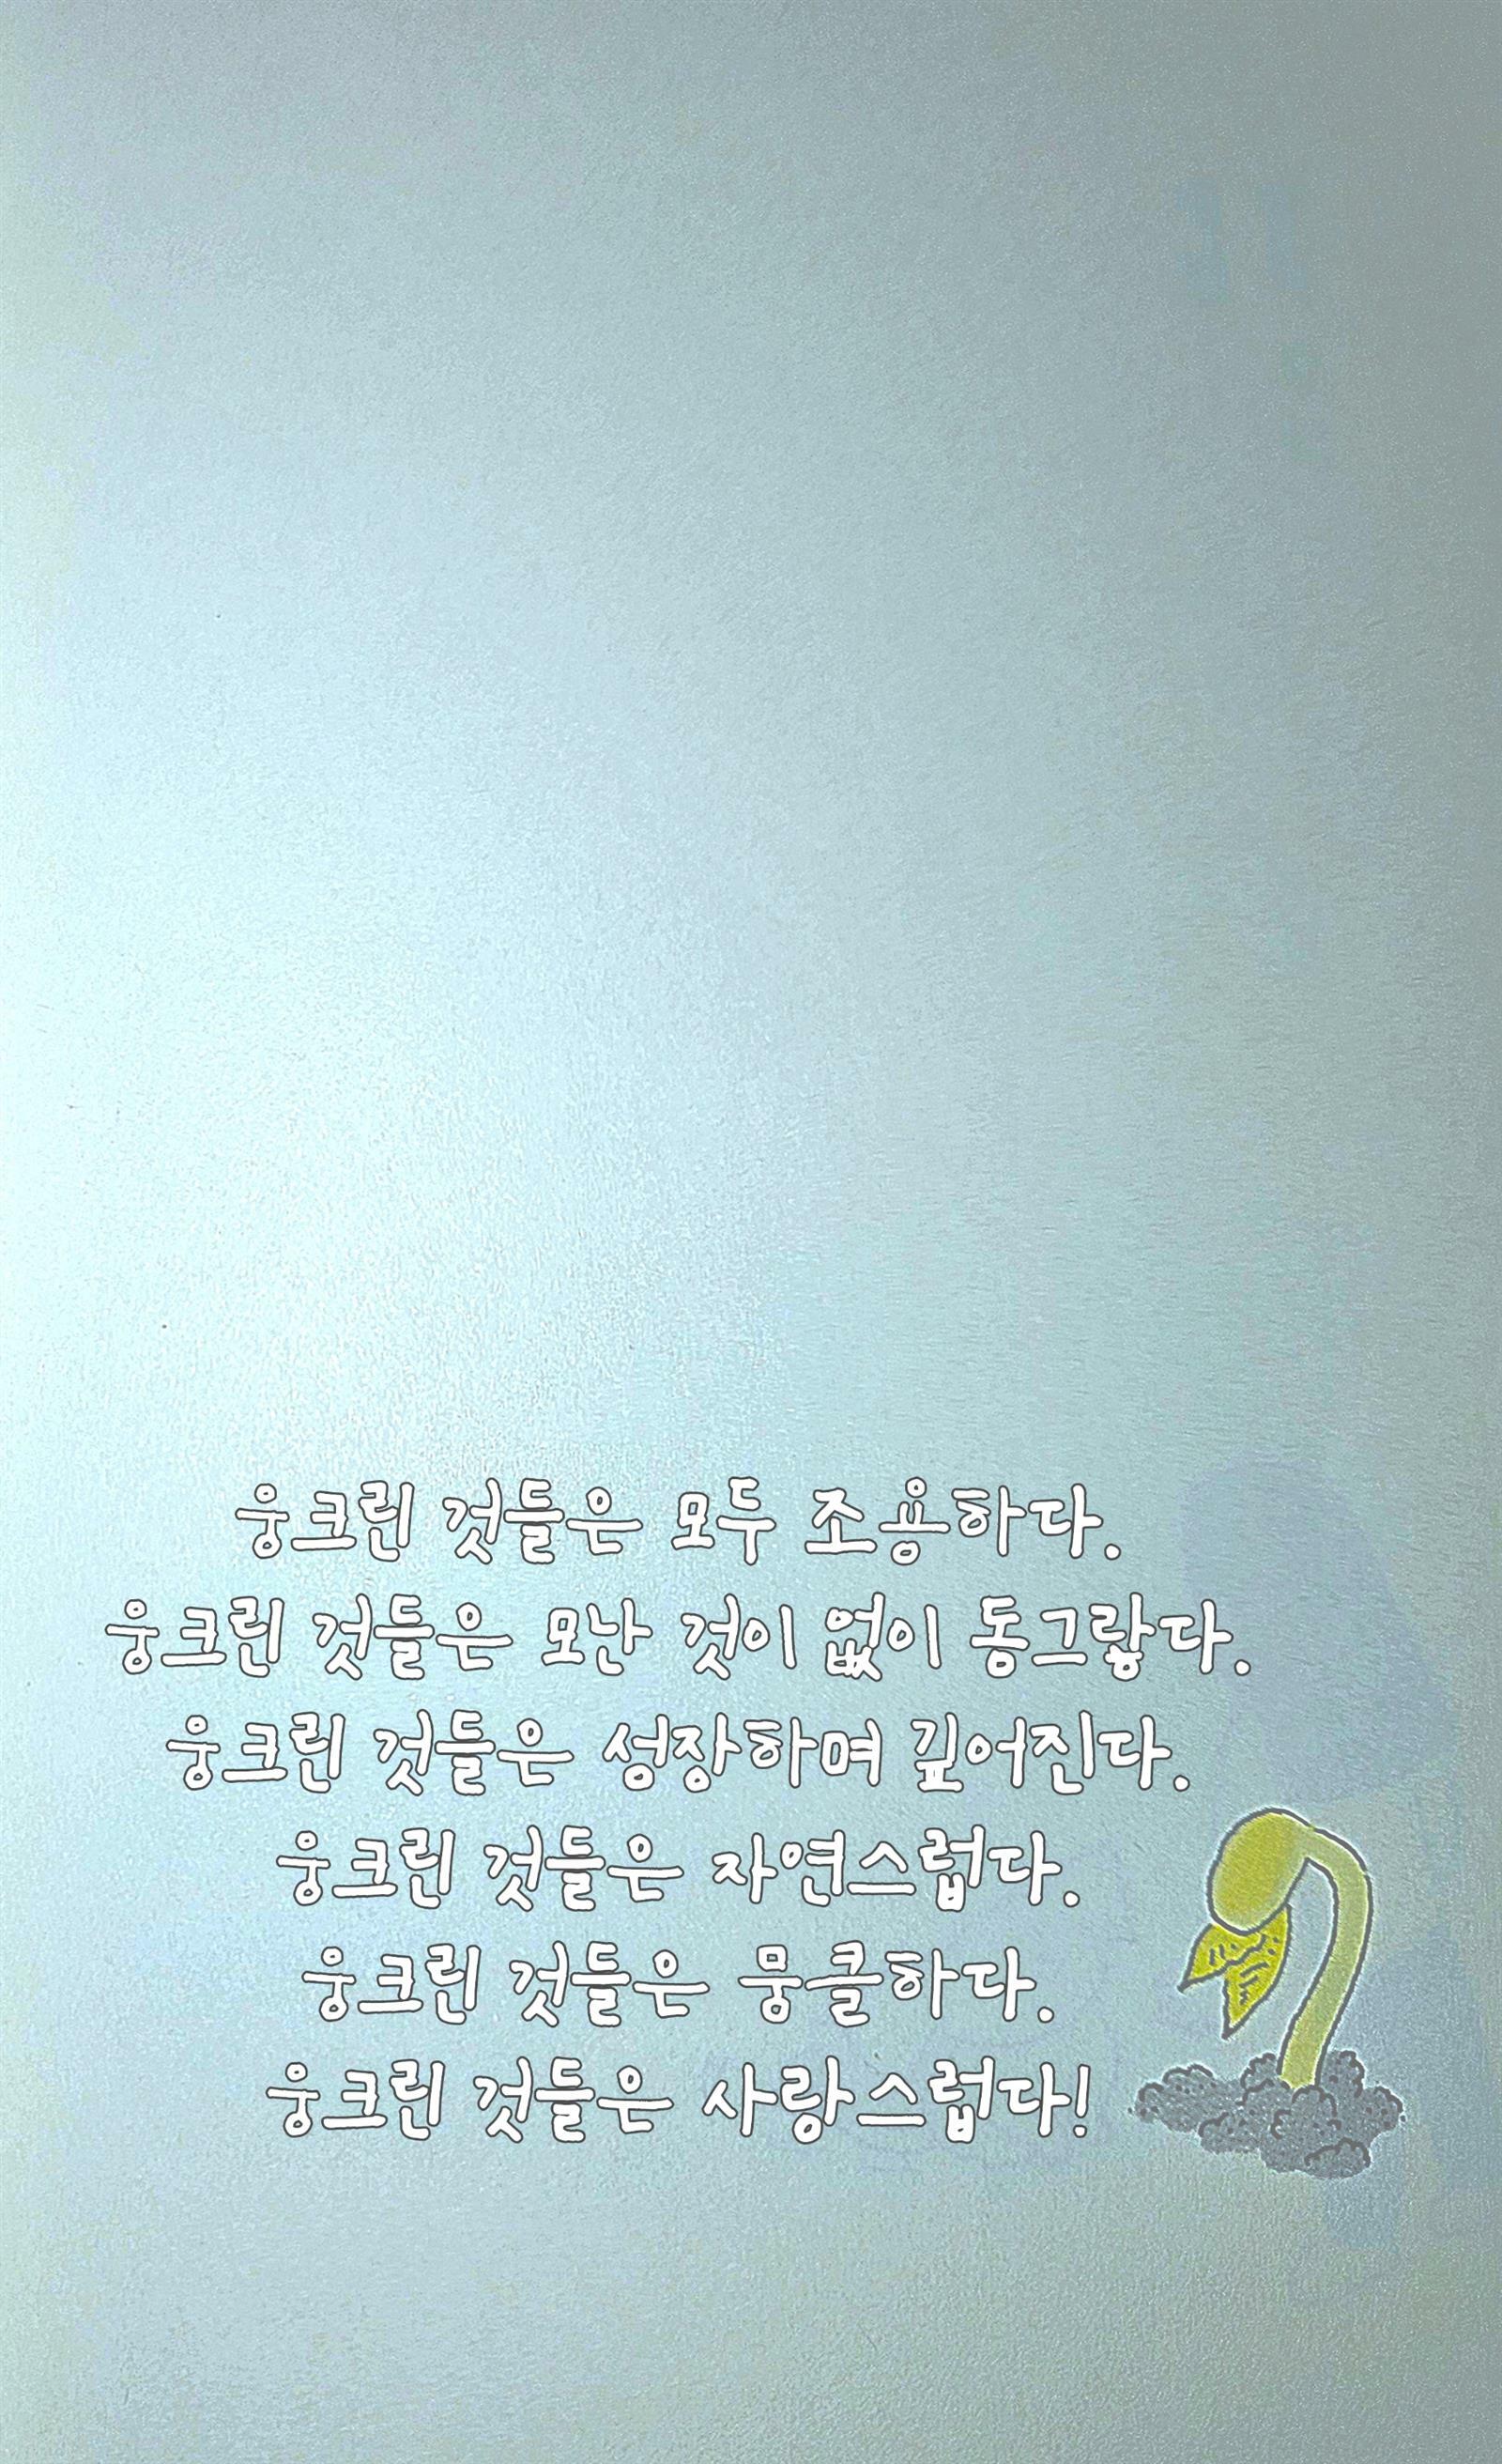 웅크린 것들은 모두 조용하다.
웅크린 것들은 모난 것이 없이 동그랗다.
웅크린 것들은 성장하며 깊어진다.
웅크린 것들은 자연스럽다.
웅크린 것들은 뭉클하다.
웅크린 것들은 사랑스럽다!